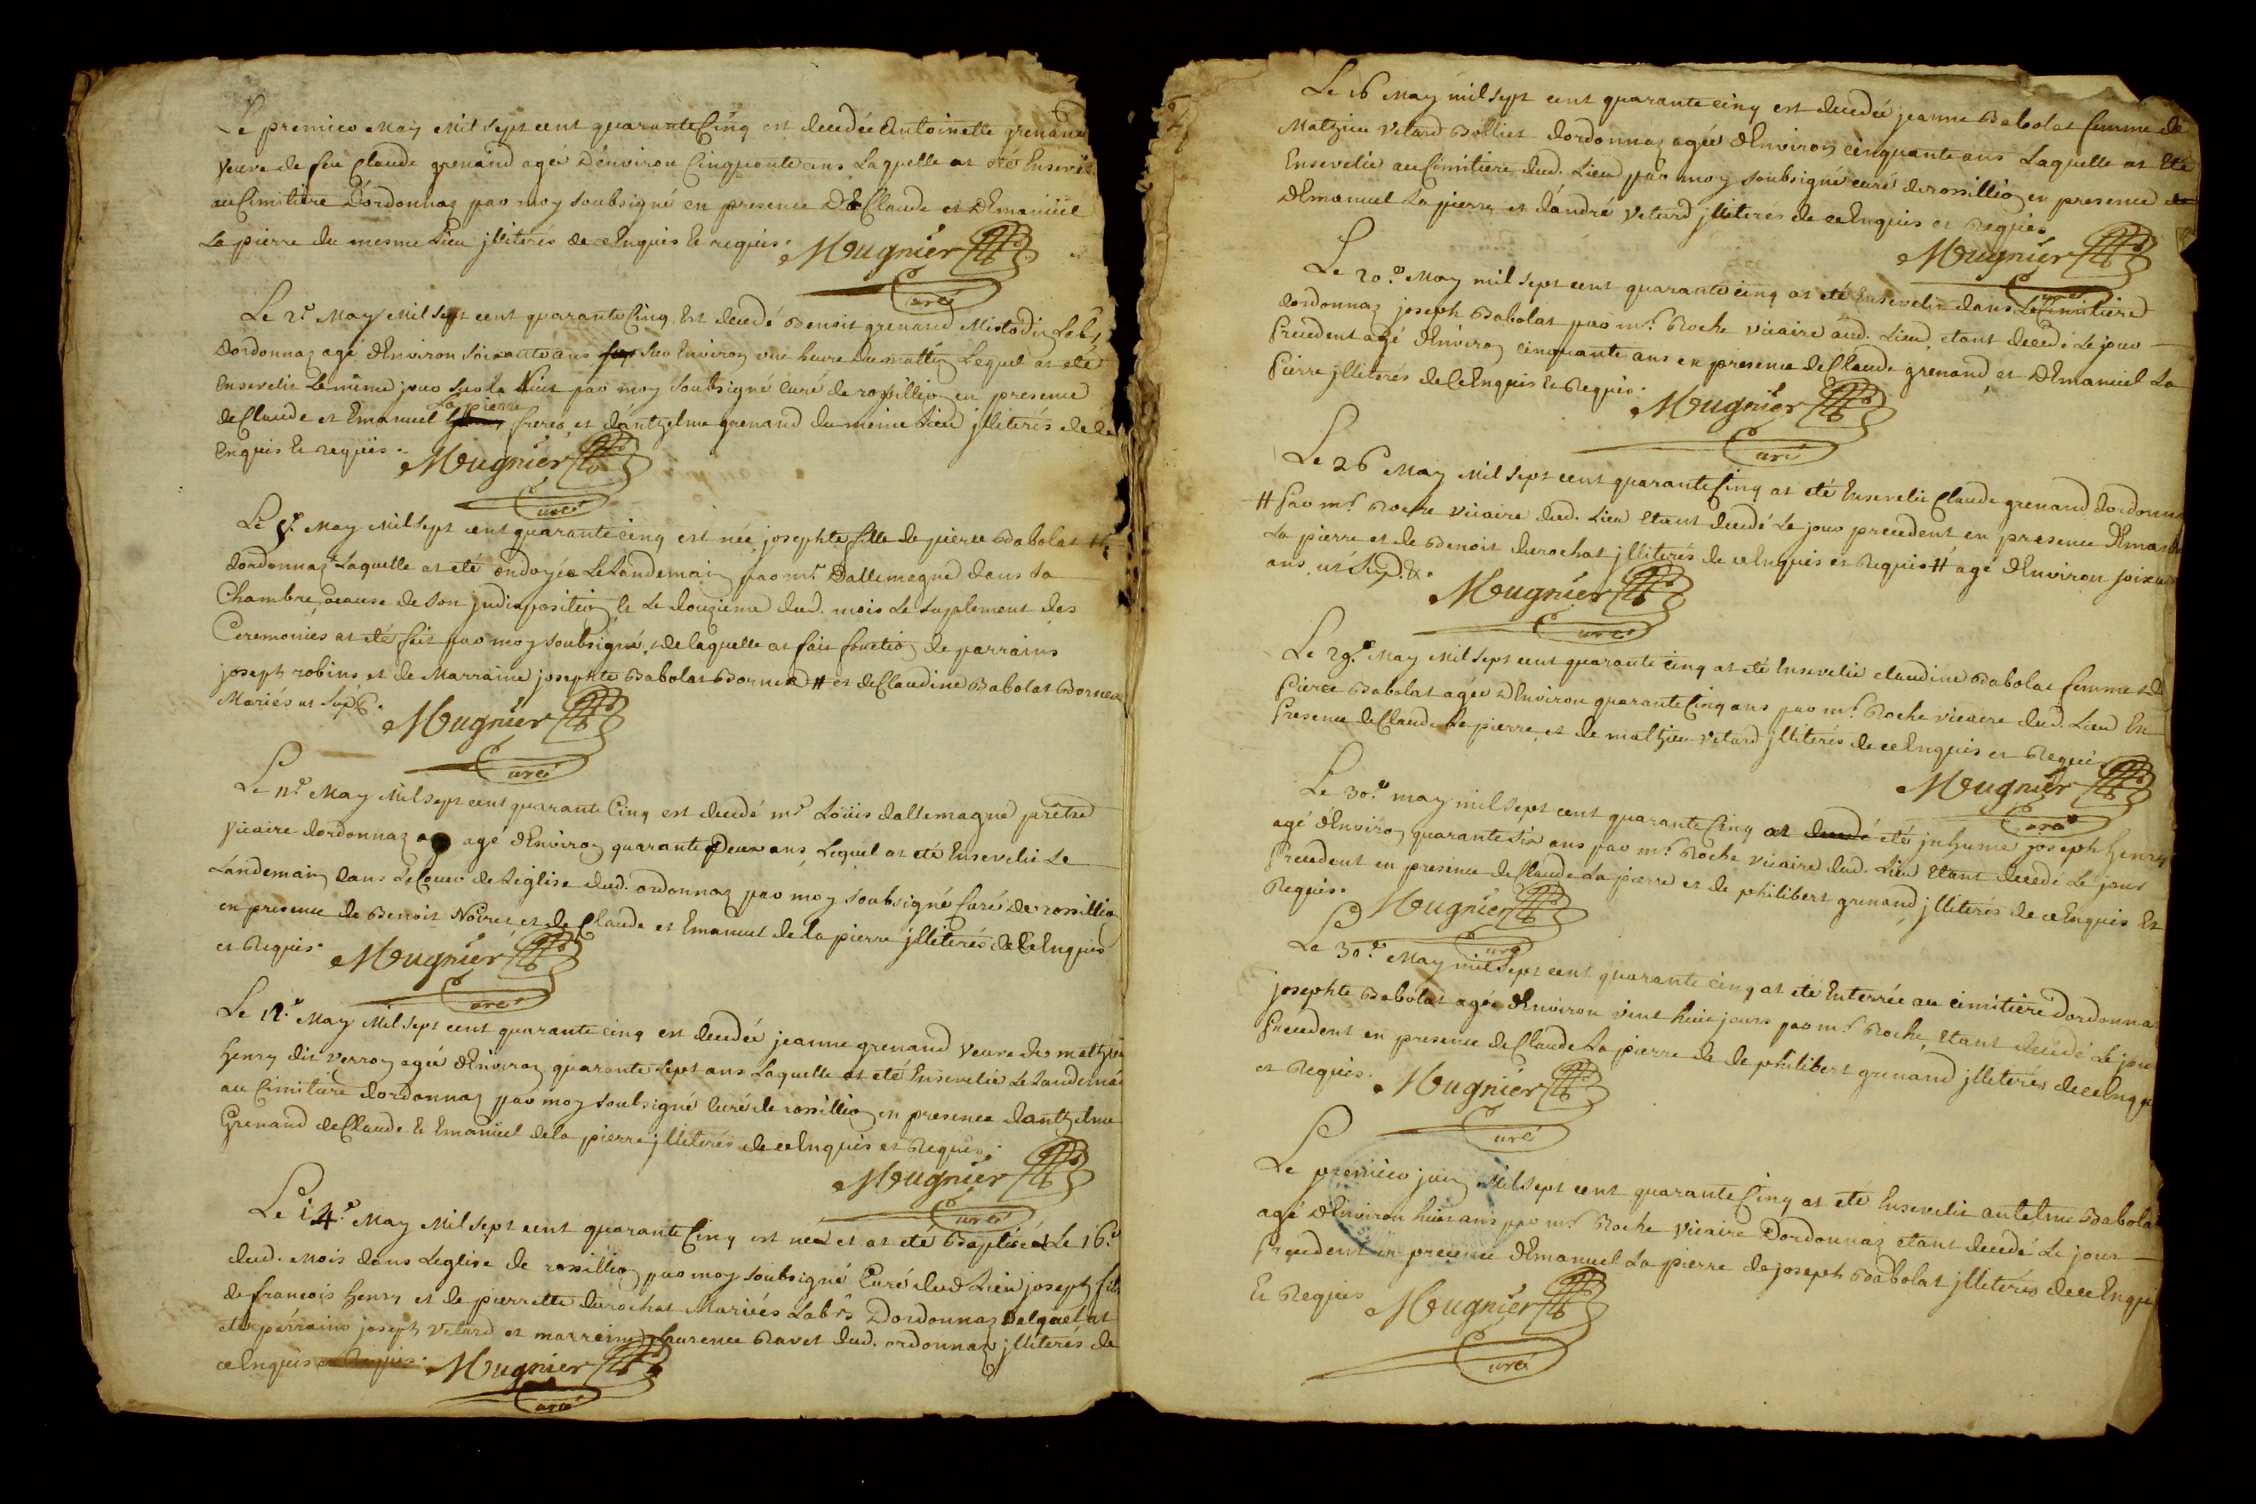 Le premier May Mil sept cent quarante Cinq est decedée Antoinette grenand
veuve de feu Claude grenand agée D'environ Cinquante ans Laquelle at été Enseveli
au Cimitière D'ordonnaz par moy soubsigné en presence De Claude et D'Emanüel
La pierre du mesme Lieu jlliterés de ce Enquis et requis. Mougnier
curé
Le 2.e May Mil sept cent quarante Cinq Est decedé Benoit grenand
Dordonnaz agé d'Environ soixante ans sur Environ une heure du mattin Lequel at été
Ensevelie Le même jour par moy soubsigné Curé de rossillion en presence
La pierre
de Claude et Emanuel freres et d'antzelme grenand du même Lieu jlliterés de ce
Enquis et requis. Mougnier
curé
Le May Mil sept cent quarante cinq est née josephte fille de pierre Babolat #
dordonnaz Laquelle at eté ondoyée Le Landemain par m.r Dallemagne dans sa
Chambre acause de son jndisposition et Le douzieme dud. mois Le suplement des
Ceremonies at eté fait par moy soubsigné, de laquelle at fait fonction de parrains
joseph robins et de Marraine josephte Babolat Bornet # et de Claudine Babolat Bornet
Mariés Mougnier
curé
Le 11.e May Mil sept cent quarante Cinq est decedé m.r Loüis dallemagne prêtre
Vicaire dordonnaz agé d'Environ quarante Deux ans Lequel at eté Ensevelie Le
Landemain dans Le Coeur de Leglise dud. ordonnaz par moy soubsigné Curé de rossillion
en presence de Benoit et de Claude et Emanuel de la pierre jlliterés de ce Enquis
et Requis. Mougnier
curé
Le 12.e May Mil sept cent quarante cinq est decedée jeanne grenand Veuve de matzieu
Henry dit Verron agée d'Environ quarante sept ans Laquelle at eté Ensevelie Le Landemain
au Cimitiere dordonnaz par moy soubsigné Curé de rossillion en presence dantzelme
Grenand de Claude et Emanüel de la pierre jlliterés de ce Enquis et Requis.
Mougnier
curé
Le 14.e May Mil sept cent quarante Cinq est né et at eté Baptisé Le 16.e
dud. Mois dans Leglise de rossillion par moy soubsigné Curé dud Lieu joseph fils
de francois Henry et de pierrette durochat Mariés Lab.rs Dordonnaz Delquel at
eté parrains joseph Vetard et marraine Laurence Ravet dud. ordonnaz jlliterés de
ce Enquis et Requis. Mougnier
curé
Le 16 May mil sept cent quarante cinq est decedée jeanne Babolat femme de
Matzieu Vetard Bolliet dordonnaz agée d'Environ cinquante ans Laquelle at Eté
Ensevelie au Cimitiere dud. Lieu par moy soubsigné curé de rossillion en presence de
d'Emanuel La pierre et d'andré Vetard jlliterés de ce Enquis et Requis
Mougnier
curé
Le 20.e May mil sept cent quarante cinq at eté Ensevelie dans Le Cimitiere
dordonnaz joseph Babolat par m.r Roche vicaire aud. Lieu, etant decedé Le jour
precedent agé d'Environ cinquante ans en presence de Claude grenand et d'Emanüel La
pierre jlliterés de Ce Enquis et Requis. Mougnier
curé
Le 26 May Mil sept cent quarante Cinq at eté Ensevelie Claude grenand dordonnaz
# par m.r Roche vicaire dud. Lieu Etant decedé Le jour precedent en presence d'Emanuel
La pierre et de Benoit durochat jlliterés de ce Enquis et Requis # agé d'Environ soixante
ans Mougnier
curé
Le 29.e May Mil sept cent quarante cinq at eté Ensevelie claudine Babolat femme de
Pierre Babolat agée d'Environ quarante Cinq ans par m.r Roche vicaire dud. Lieu En
presence de Claude La pierre et de matzieu Vetard jlliterés de ce Enquis et Requis
Mougnier
curé
Le 30.e may mil sept cent quarante Cinq at decedé eté jnhumé joseph Henry
agé d'Environ quarante six ans par m.r Roche vicaire dud. Lieu Etant decedé Le jour
Precedent en presence de Claude La pierre et de philibert grenand jlliterés de ce Enquis Et
Requis. Mougnier
curé
Le 30.e May mil sept cent quarante cinq at eté Enterrée au cimitiere Dordonnaz
josephte Babolat agée d'Environ vint huit jours par m.r Roche, Etant decedé Le jour
Precedent en presence de Claude La pierre de de philibert grenand jlliterés de ce Enquis
et Requis. Mougnier
curé
Le premier juin Mil sept cent quarante Cinq at eté Ensevelie antelme Babolat
agé d'Environ huit ans par m.r Roche Vicaire Dordonnaz etant decedé Le jour
Precedent en presence d'Emanuel La pierre de joseph Babolat jlliterés de ce Enquis
Et Requis Mougnier
curé